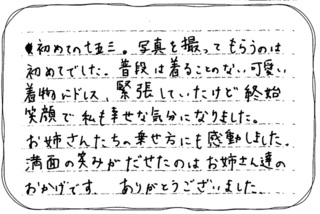 初めての七五三。写真を撮ってもらうのは
初めてでした。普段は着ることのない可愛い
着物にドレス、緊張していたけど終始
笑顔で私も幸せな気分になりました。
お姉さんたちの乗せ方にも感動しました。
満面の笑みがだせたのはお姉さん達の
おかげです。ありがとうございました。